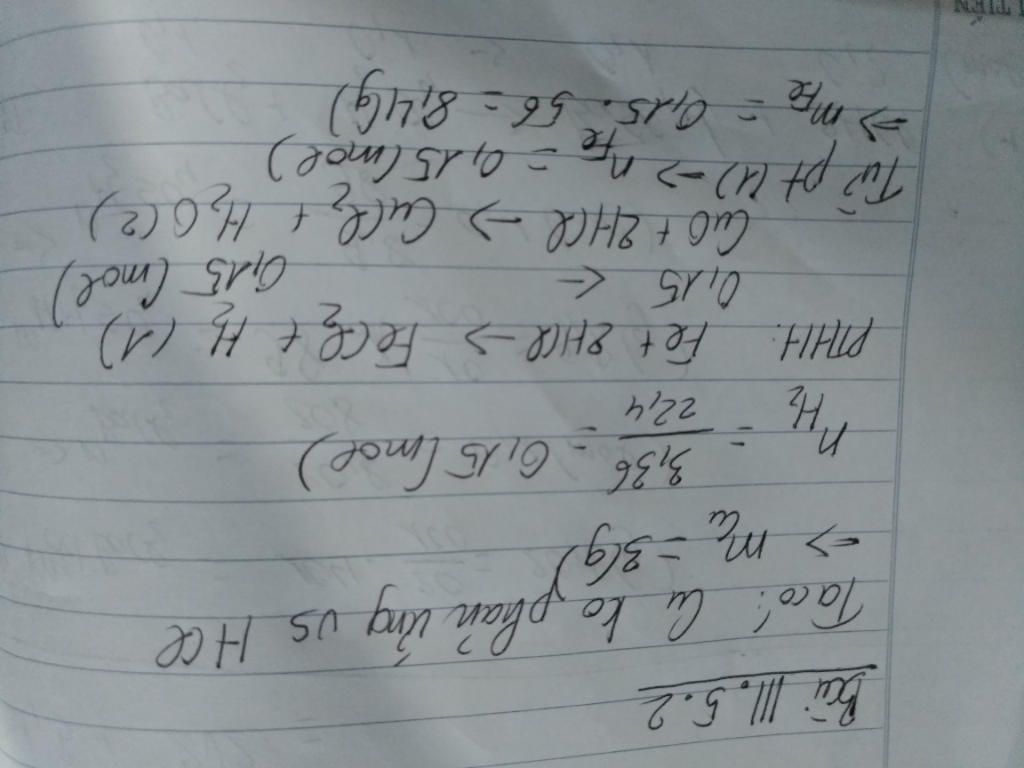 Bài III.5.2
Ta có: Cu ko phản ứng vs HCl
=> mCu = 3(g)
nH2 = 3,36/22,4 = 0,15 (mol)
PTHH: Fe + 2HCl -> FeCl2 + H2 (1)
0,15 <- 0,15 (mol)
CuO + 2HCl -> CuCl2 + H2O (2)
Từ pt (1) -> nFe = 0,15 (mol)
=> mFe = 0,15. 56 = 8,4(g)
TIẾN